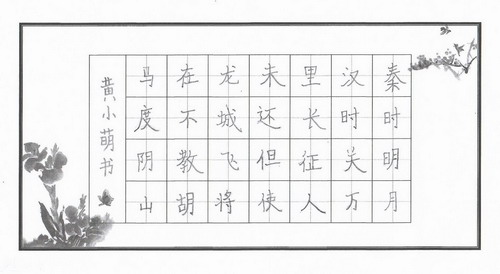 秦时明月
汉时关万
里长征人
未还但使
龙城飞将
在不教胡
马度阴山
黄小萌书